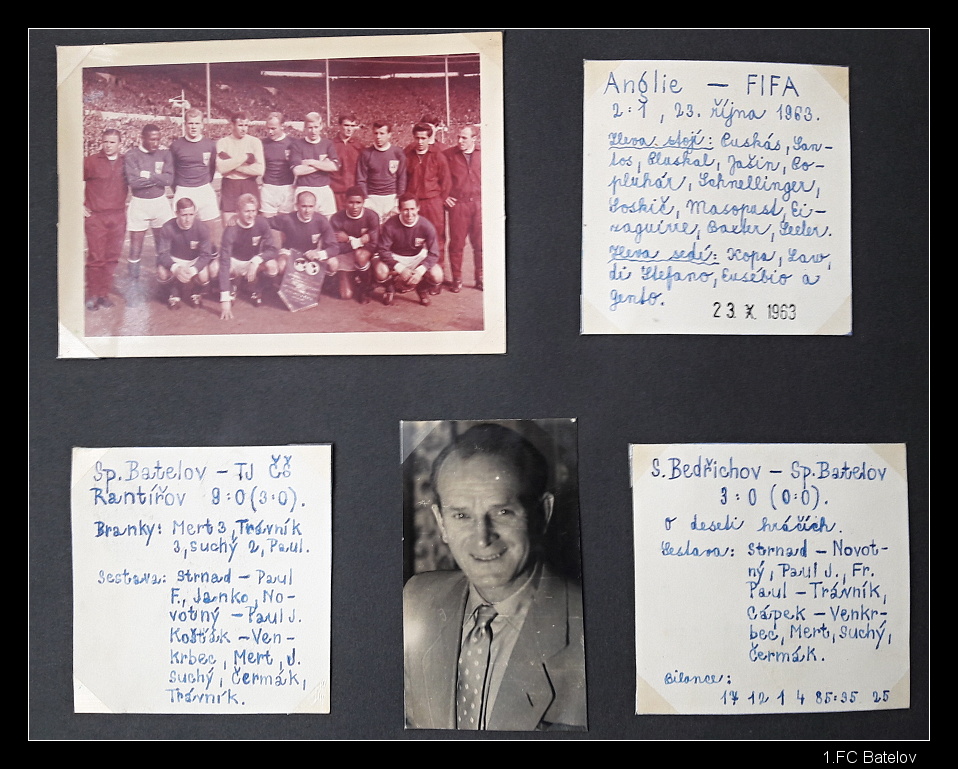 Anglie – FIFA
2:1, 23. října 1963.
Zleva stojí: Puskás, San-
tos, Pluskal, Jašin, Po-
pluhár, Schnellinger,
Soskič, Masopust, Ei-
zaguirre, Baxter, Seeler.
Zleva sedí: Kopa, Law,
di Stefano, Eusébio a
Gento.
23. X. 1963
Sp. Batelov – TJ Čs
Rantířov 9:0 (3:0).
Branky: Mert 3, Trávník
3, Suchý 2, Paul.
Sestava: Strnad – Paul
F., Janko, No-
votný – Paul J.
Košťák – Ven-
krbec, Mert, J.
Suchý, Čermák,
Trávník.
S. Bedřichov – Sp. Batelov
3:0 (0:0).
O deseti hráčích.
Sestava: Strnad – Novot-
ný, Paul J., Fr.
Paul – Trávník,
Cápek – Venkr-
bec, Mert, Suchý,
Čermák.
Bilance:
17 12 1 4 85:35 25
1.FC Batelov